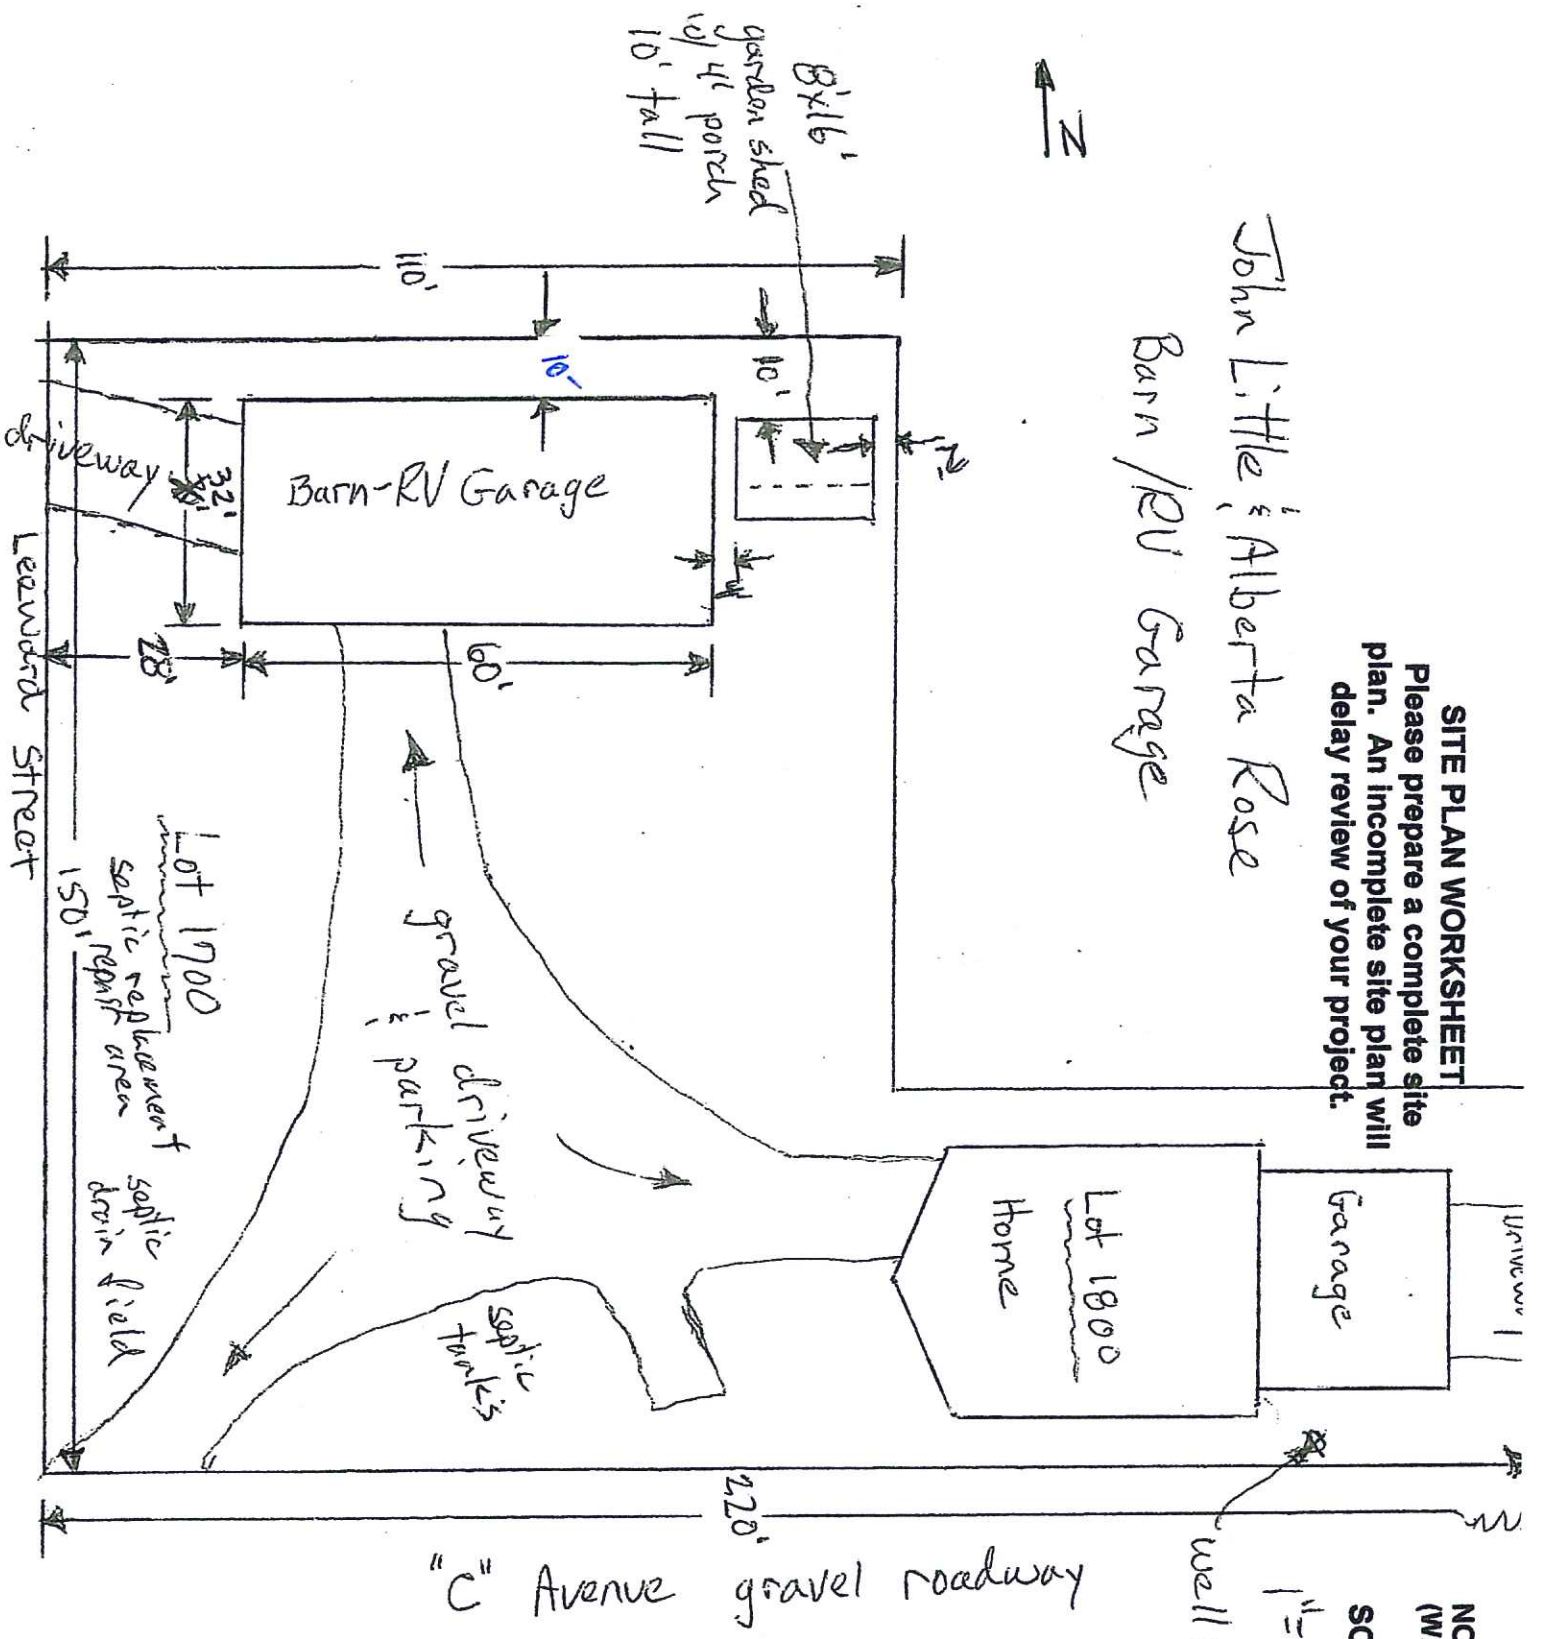 SITE PLAN WORKSHEET
Please prepare a complete site
plan. An incomplete site plan will
delay review of your project.
John Little & Alberta Rose
Barn/RV Garage
N
8'x16'
garden shed
w/ 4' porch
10' tall
110'
10'
10'
Barn-RV Garage
32'
driveway
28'
60'
Leeward Street
150'
Lot 1700
septic replacement
repair area
septic
drain field
gravel driveway
& parking
septic
tanks
Lot 1800
Home
Garage
well
1"=
220'
"C" Avenue gravel roadway